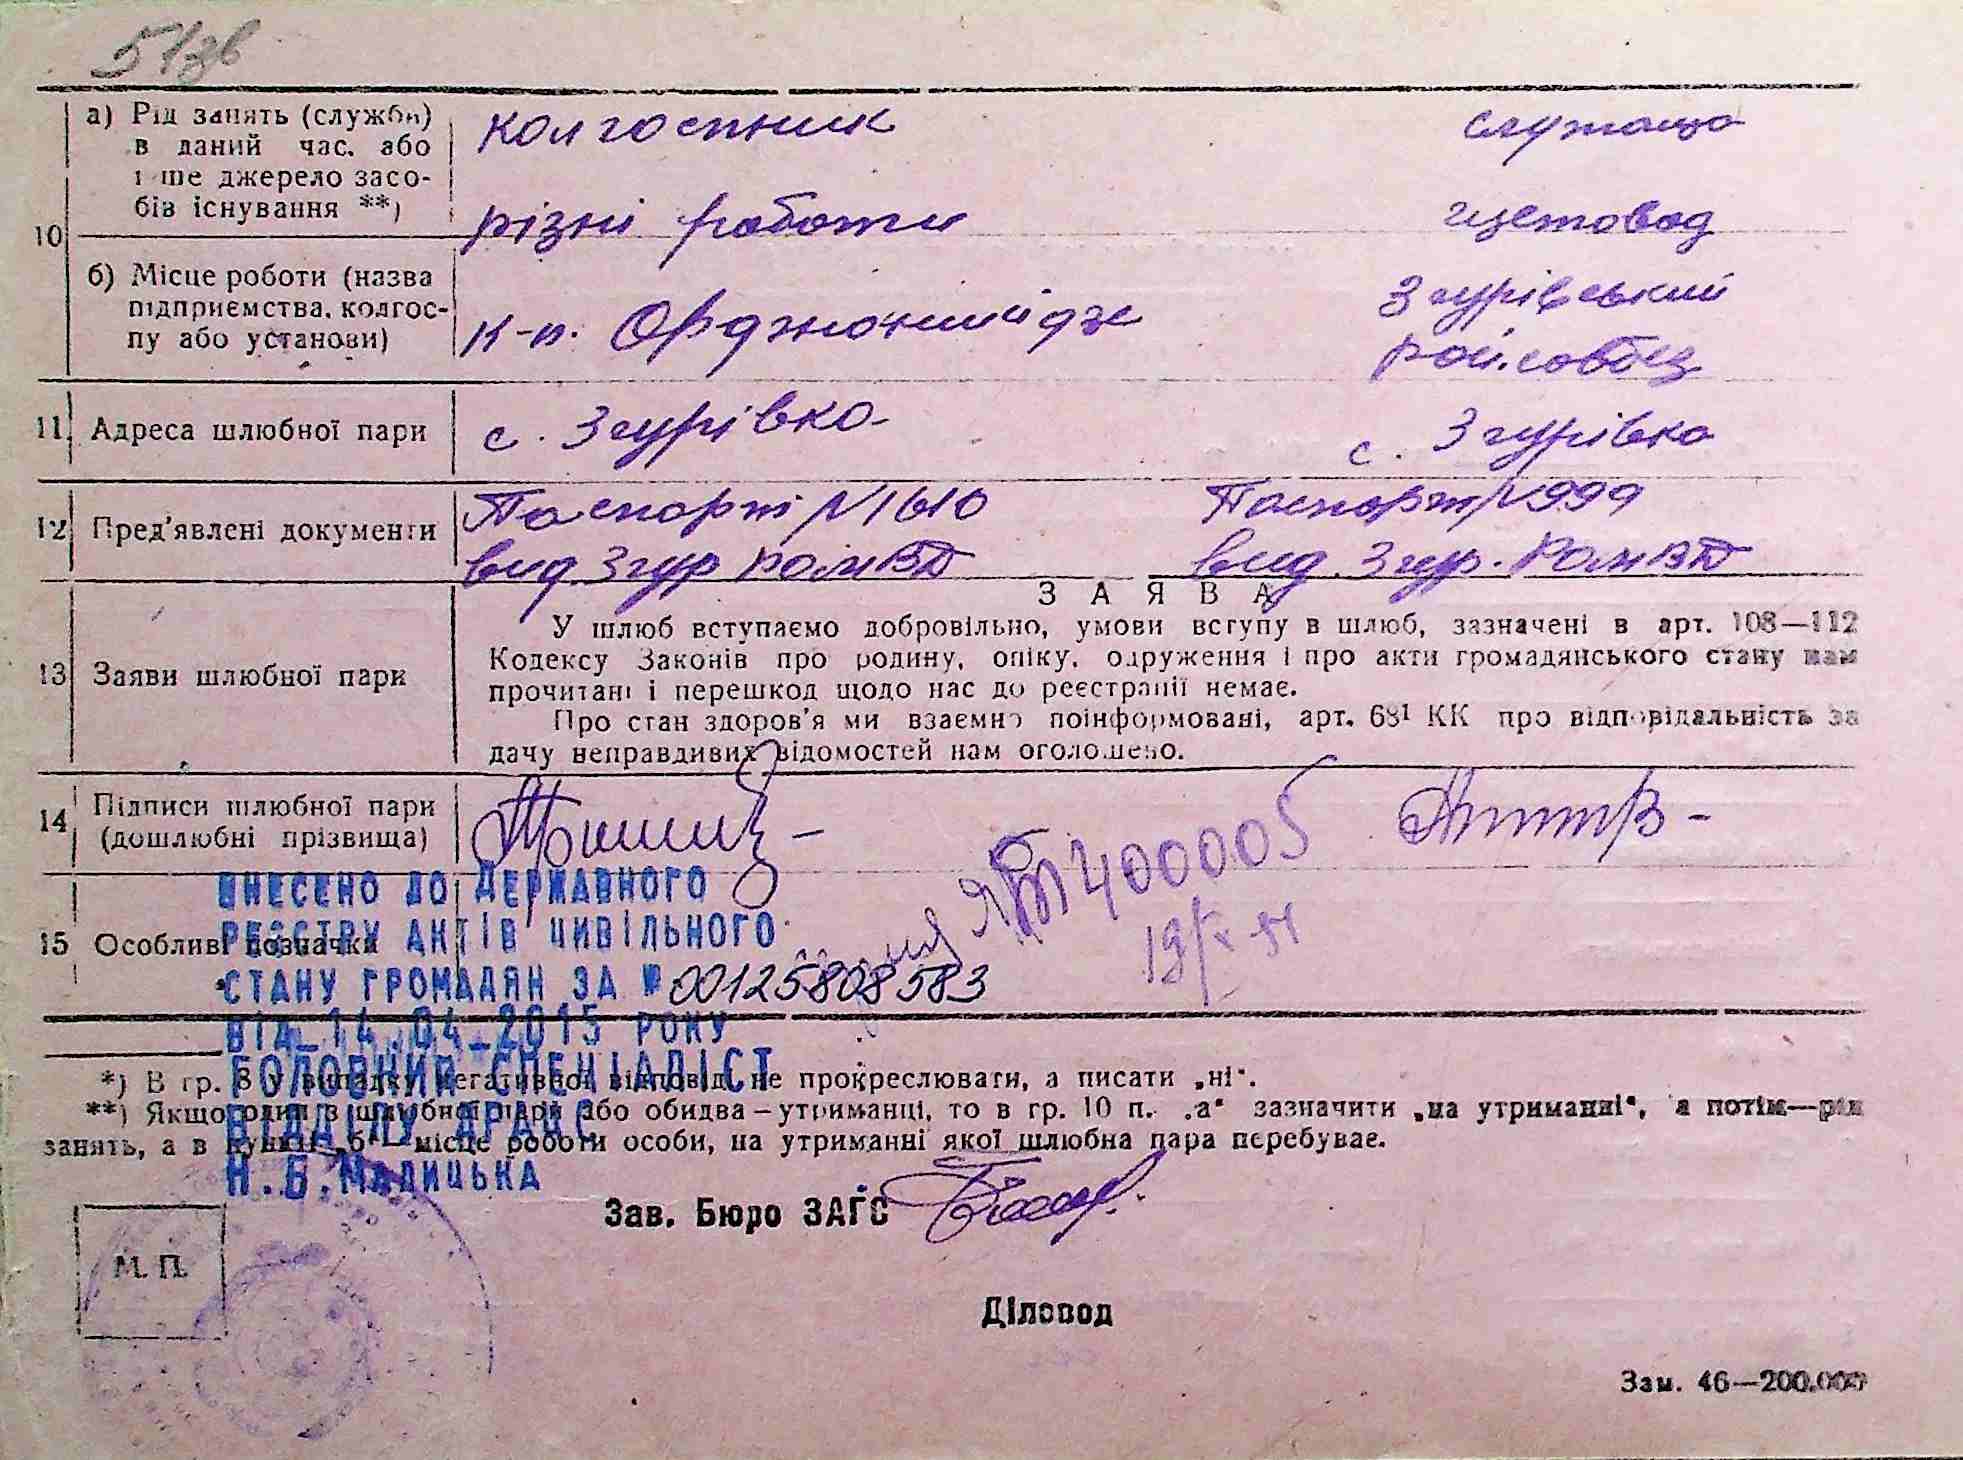 51зв
10
а) Рід занять (служби)
в даний час. або
інше джерело засо-
бів існування **)
колгоспник
різні роботи
служаща
щетовод
б) Місце роботи (назва
підприємства, колгос-
пу або установи)
к-п. Орджоникідж
Згурівський
рай.собез
11. Адреса шлюбної пари
с. Згурівка
с. Згурівка
12 Пред'явлені документи
Паспорт №1610
вид. Згур РОМВД
Паспорт №999
вид. Згур. РОМВД
ЗАЯВА
13 Заяви шлюбної пари
У шлюб вступаємо добровільно, умови вступу в шлюб, зазначені в арт. 108—112
Кодексу Законів про родину, опіку, одруження і про акти громадянського стану нам
прочитані і перешкод щодо нас до реєстрації немає.
Про стан здоров'я ми взаємно поінформовані, арт. 68¹ КК про відповідальність за
дачу неправдивих відомостей нам оголошено.
14 Підписи шлюбної пари
(дошлюбні прізвища)
15 Особливі позначки
400005
ВНЕСЕНО ДО ДЕРЖАВНОГО
РЕЄСТРУ АКТІВ ЦИВІЛЬНОГО
СТАНУ ГРОМАДЯН ЗА № 00125808583
ВІД 14.04.2015 РОКУ
ГОЛОВНИЙ СПЕЦІАЛІСТ
ВІДДІЛУ ДРАЦС
Н.Б.Малицька
*) В гр. 8 у випадку негативної відповіді не прокреслювати, а писати „ні".
**) Якщо один з шлюбної пари або обидва – утриманці, то в гр. 10 п. „а" зазначити „на утриманні", а потім—рід
занять, а в пункті „б" – місце роботи особи, на утриманні якої шлюбна пара перебуває.
М. П.
Зав. Бюро ЗАГС
Діловод
Зам. 46—200.000